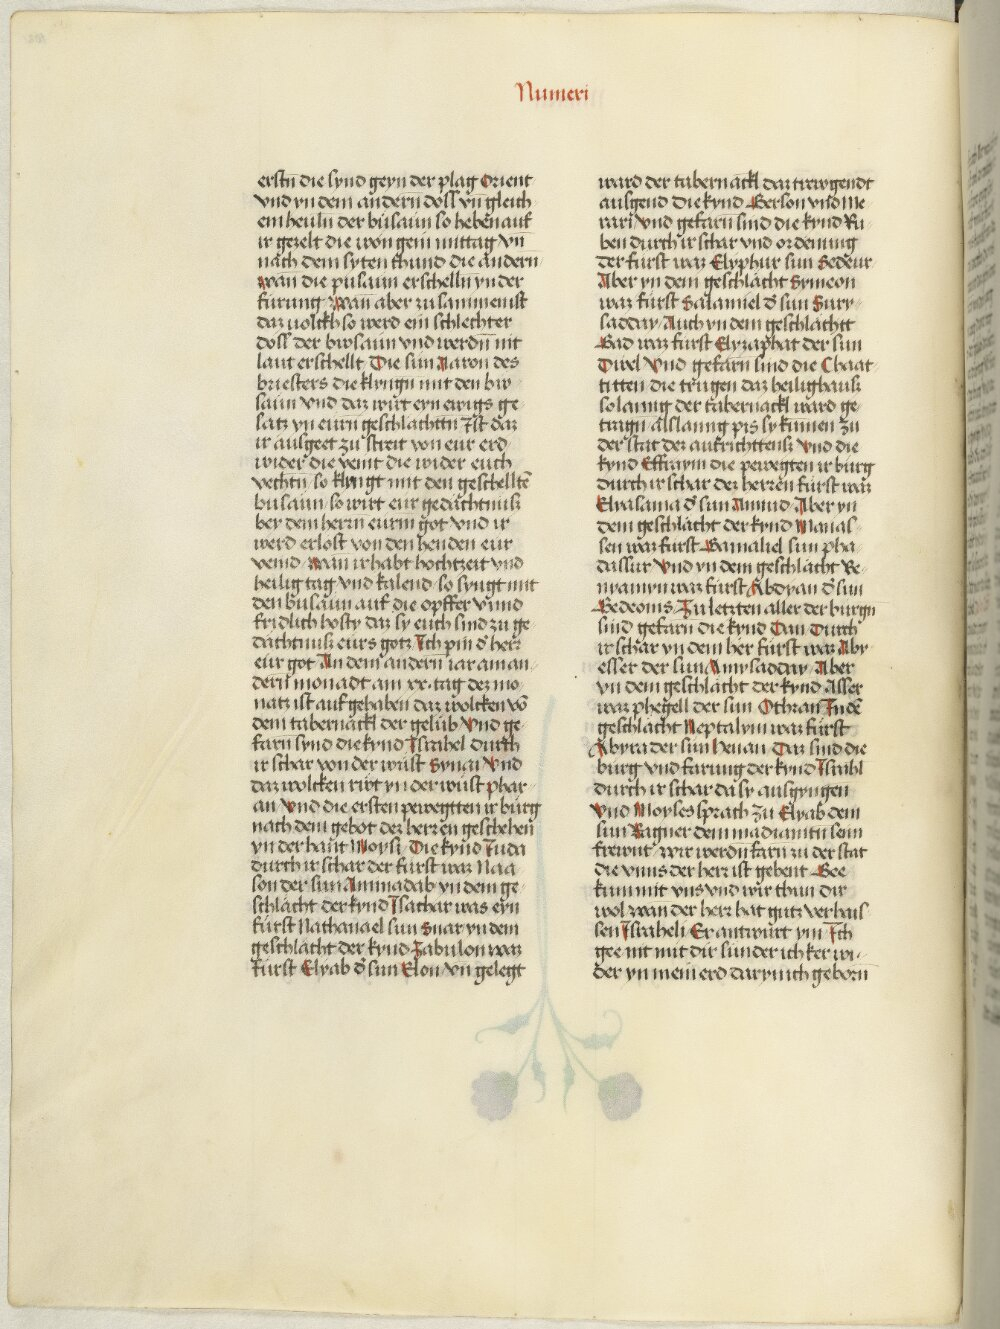 Numeri
erstn die synd geyn der plag Orient
vnd yn dem andern doss vn̄ gleich
em heuln der busaun so hebēn auf
ir gezelt die won gein mittag vn̄
nach dem syten thund die andern
wan die pusaun erschelln yn der
furung Wan̄ aber zu sammen ist
daz uolckh so werd ein schlechter
doss der bwsaun vnd werdn̄ nit
laut erschellt Die sun Aaron des
briesters die klyngn mit den bw
saun vnd daz wurt eyn ewigs ge
satz yn eurn geschlachttn Ist daz
ir ausgeet zu streit von eur erd
wider die veint die wider euch
vechtn so klyngt mit den geschelltē
busaun so wirt eur gedachtnusz
bey dem herrn eurm got vnd ir
werd erlost von den henden eur
veind wan ir habt hochtzeit vnd
heilig tag vnd kalend so syngt mit
den busaun auf die opffer vnnd
fridlich hosty daz sy euch sind zu ge
dachtnusz eurs gotz Ich pin d̄ herr
eur got An dem andern iar am an
dern monadt am xx tag dez mo
natz ist auf gehaben daz wolcken vō
dem tabernackl der gelub vnd ge
farn synd die kynd Israhel durch
ir schar von der wust Synai vnd
daz wolcken rwt yn der wust phar
an vnd die ersten pewegtten ir burg
nach dem gebot dez herren geschehen
yn der hant Moysi Die kynd Iuda
durch ir schar der furst waz Naa
son der sun Aminadab yn dem ge
schlacht der kynd Isachar was eyn
furst Nathanael sun Suar yn dem
geschlacht der kynd Zabulon waz
furst Elyab d̄ sun Elon vn̄ gelegt
ward der tabernackl daz trwgendt
ausgend die kynd Gerson vnd Me
rari vnd gefarn sind die kynd Ru
ben durch ir schar vnd ordennng
Der furst waz Elyphur sun Sedeur
Aber yn dem geschlacht Symeon
waz furst Salamiel d̄ sun Sury
saddar Auch yn dem geschlachtt
Gad waz furst Elyzaphat der sun
Duel vnd gefarn sind die Chaat
titten die trugen daz heilighausz
so lanng der tabernackl ward ge
tragn als lanng pis sy kumen zu
der stat dez aufrichttensz vnd die
kynd Effraym die pewegten ir burg
durch ir schar dez herrēn furst waz
Elyasama d̄ sun Amiud Aber yn
dem geschlacht der kynd Manas
sen waz furst Gamaliel sun pha
dassur vnd yn dem geschlacht Be
nyamyn waz furst Abdyan d̄ sun
Gedeonis Zu letzten aller der burgn
sind gefarn die kynd Dan Durch
ir schar yn dem her furst waz Ahy
esser der sun Amysadday Aber
yn dem geschlacht der kynd Asser
waz phegell der sun Othran In dē
geschlacht Neptalym waz furst
Ahyra der sun henan Daz sind die
burg vnd farung der kynd Israhl
durch ir schar da sy ausgyngen
vnd Moyses sprach zu Elyab dem
sun Raguer dem madianitn sein
frewnt wir werdn farn zu der stat
die vnns der herr ist gebent Gee
kum mit vns vnd wir thun dir
wol wan der herr hat gutz verhais
sen Israheli Er antwurt ym Ich
gee nit mit dir sunder ich ker wi
der yn mein erd daryn ich geborn